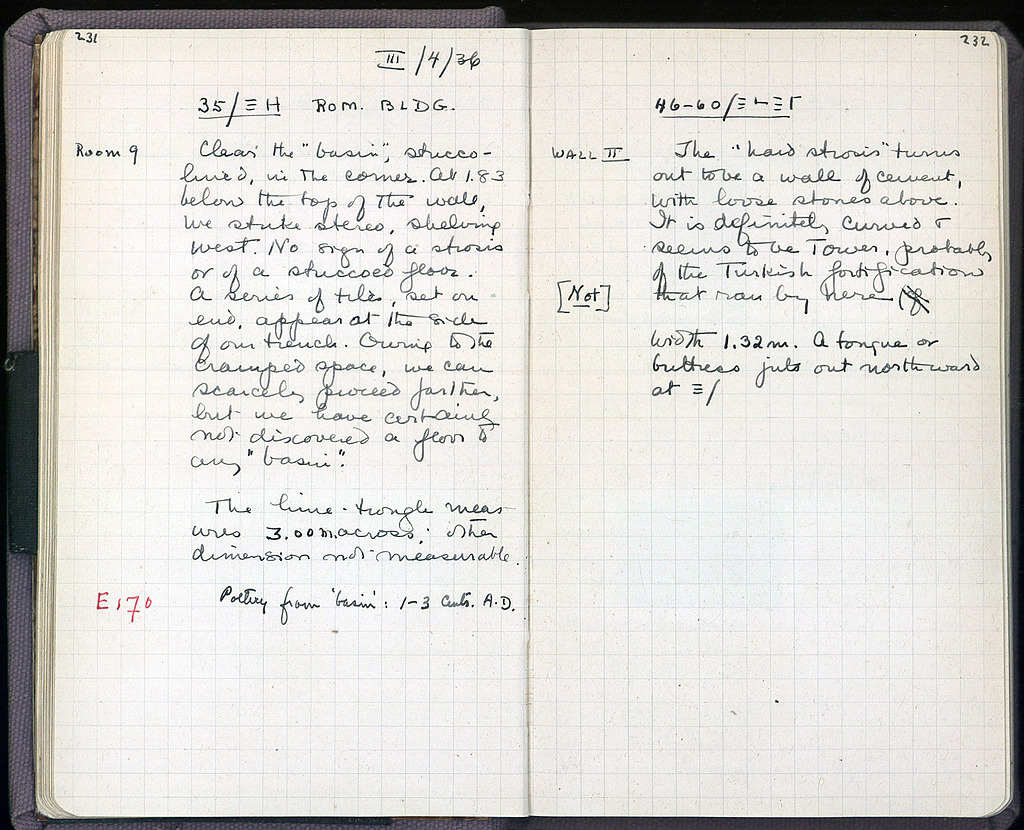 231
III/4/36
35/ΞΗ ROM. BLDG.
Room 9
Clear the "basin", stucco-
lined, in the corner. At 1.83
below the top of the wall,
we strike stereo, shelving
west. No sign of a strosis
or of a stuccoed floor.
A series of tiles, set on
end, appear at the side
of our trench. Owing to the
cramped space, we can
scarcely proceed farther,
but we have certainly
not discovered a floor to
any "basin".
The lime-trough meas-
ures 3.00 m. across; other
dimension not measurable.
E 170
Pottery from 'basin': 1-3 Cents. A.D.
232
46-60/Ξ⊢ΞΓ
WALL II
The "hard strosis" turns
out to be a wall of cement,
with loose stones above.
It is definitely curved &
seems to be Tower, probably
of the Turkish fortification
[Not]
that ran by here (if
Width 1.32 m. A tongue or
buttress juts out northward
at Ξ/